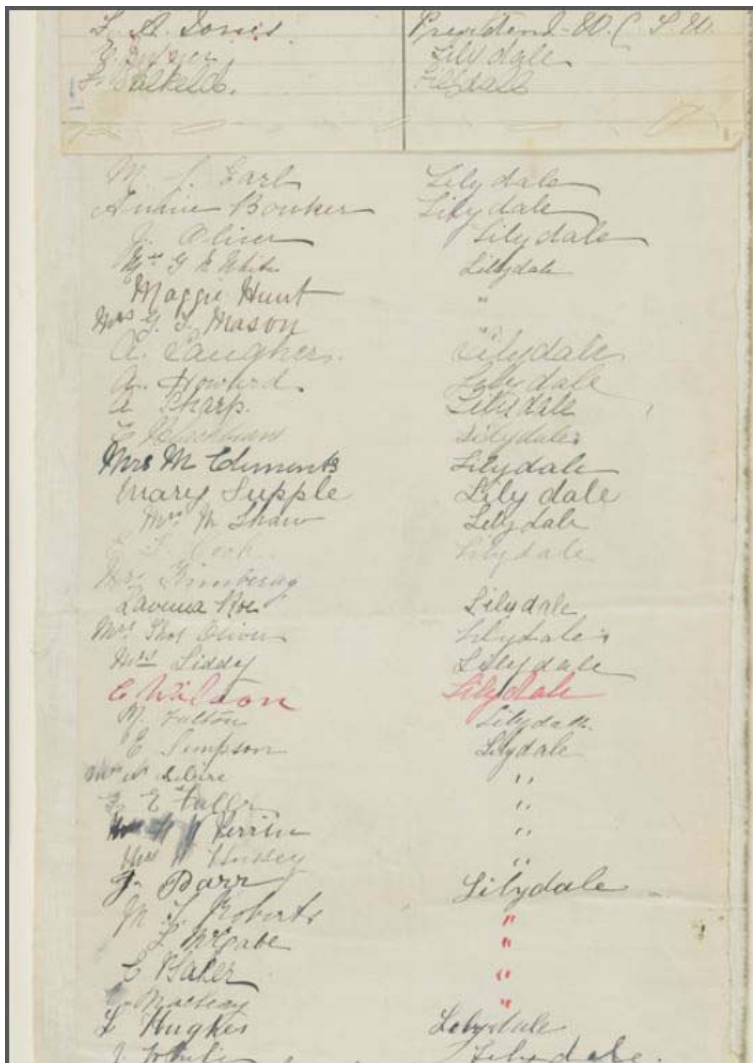 President - W. C. T. U.
Lilydale
Lilydale
M. J. Earl Lilydale
Annie Bowker Lilydale
J. Oliver Lilydale
Mrs G White Lillydale
Maggie Hunt "
Mrs G. Mason "
A. Lilydale
A. Howard Lilydale
A Sharp. Lilydale
Blackburn Lilydale
Mrs M Clements Lilydale
Mary Supple Lily dale
Mrs M Shaw Lilydale
Cook Lilydale
Mrs
Lavinia Roe Lilydale
Mrs Thos Oliver Lilydale
Mrs Liddy Lilydale
C Wilson Lilydale
M. Fulton Lilydale
E Simpson Lilydale
Mrs "
E Fuller "
Mrs Perrin "
Mrs W Hussey "
J. Barr Lilydale
M. J. Roberts "
L McCabe "
C Baker "
Macleay "
L Hughes Lilydale
J. White Lilydale